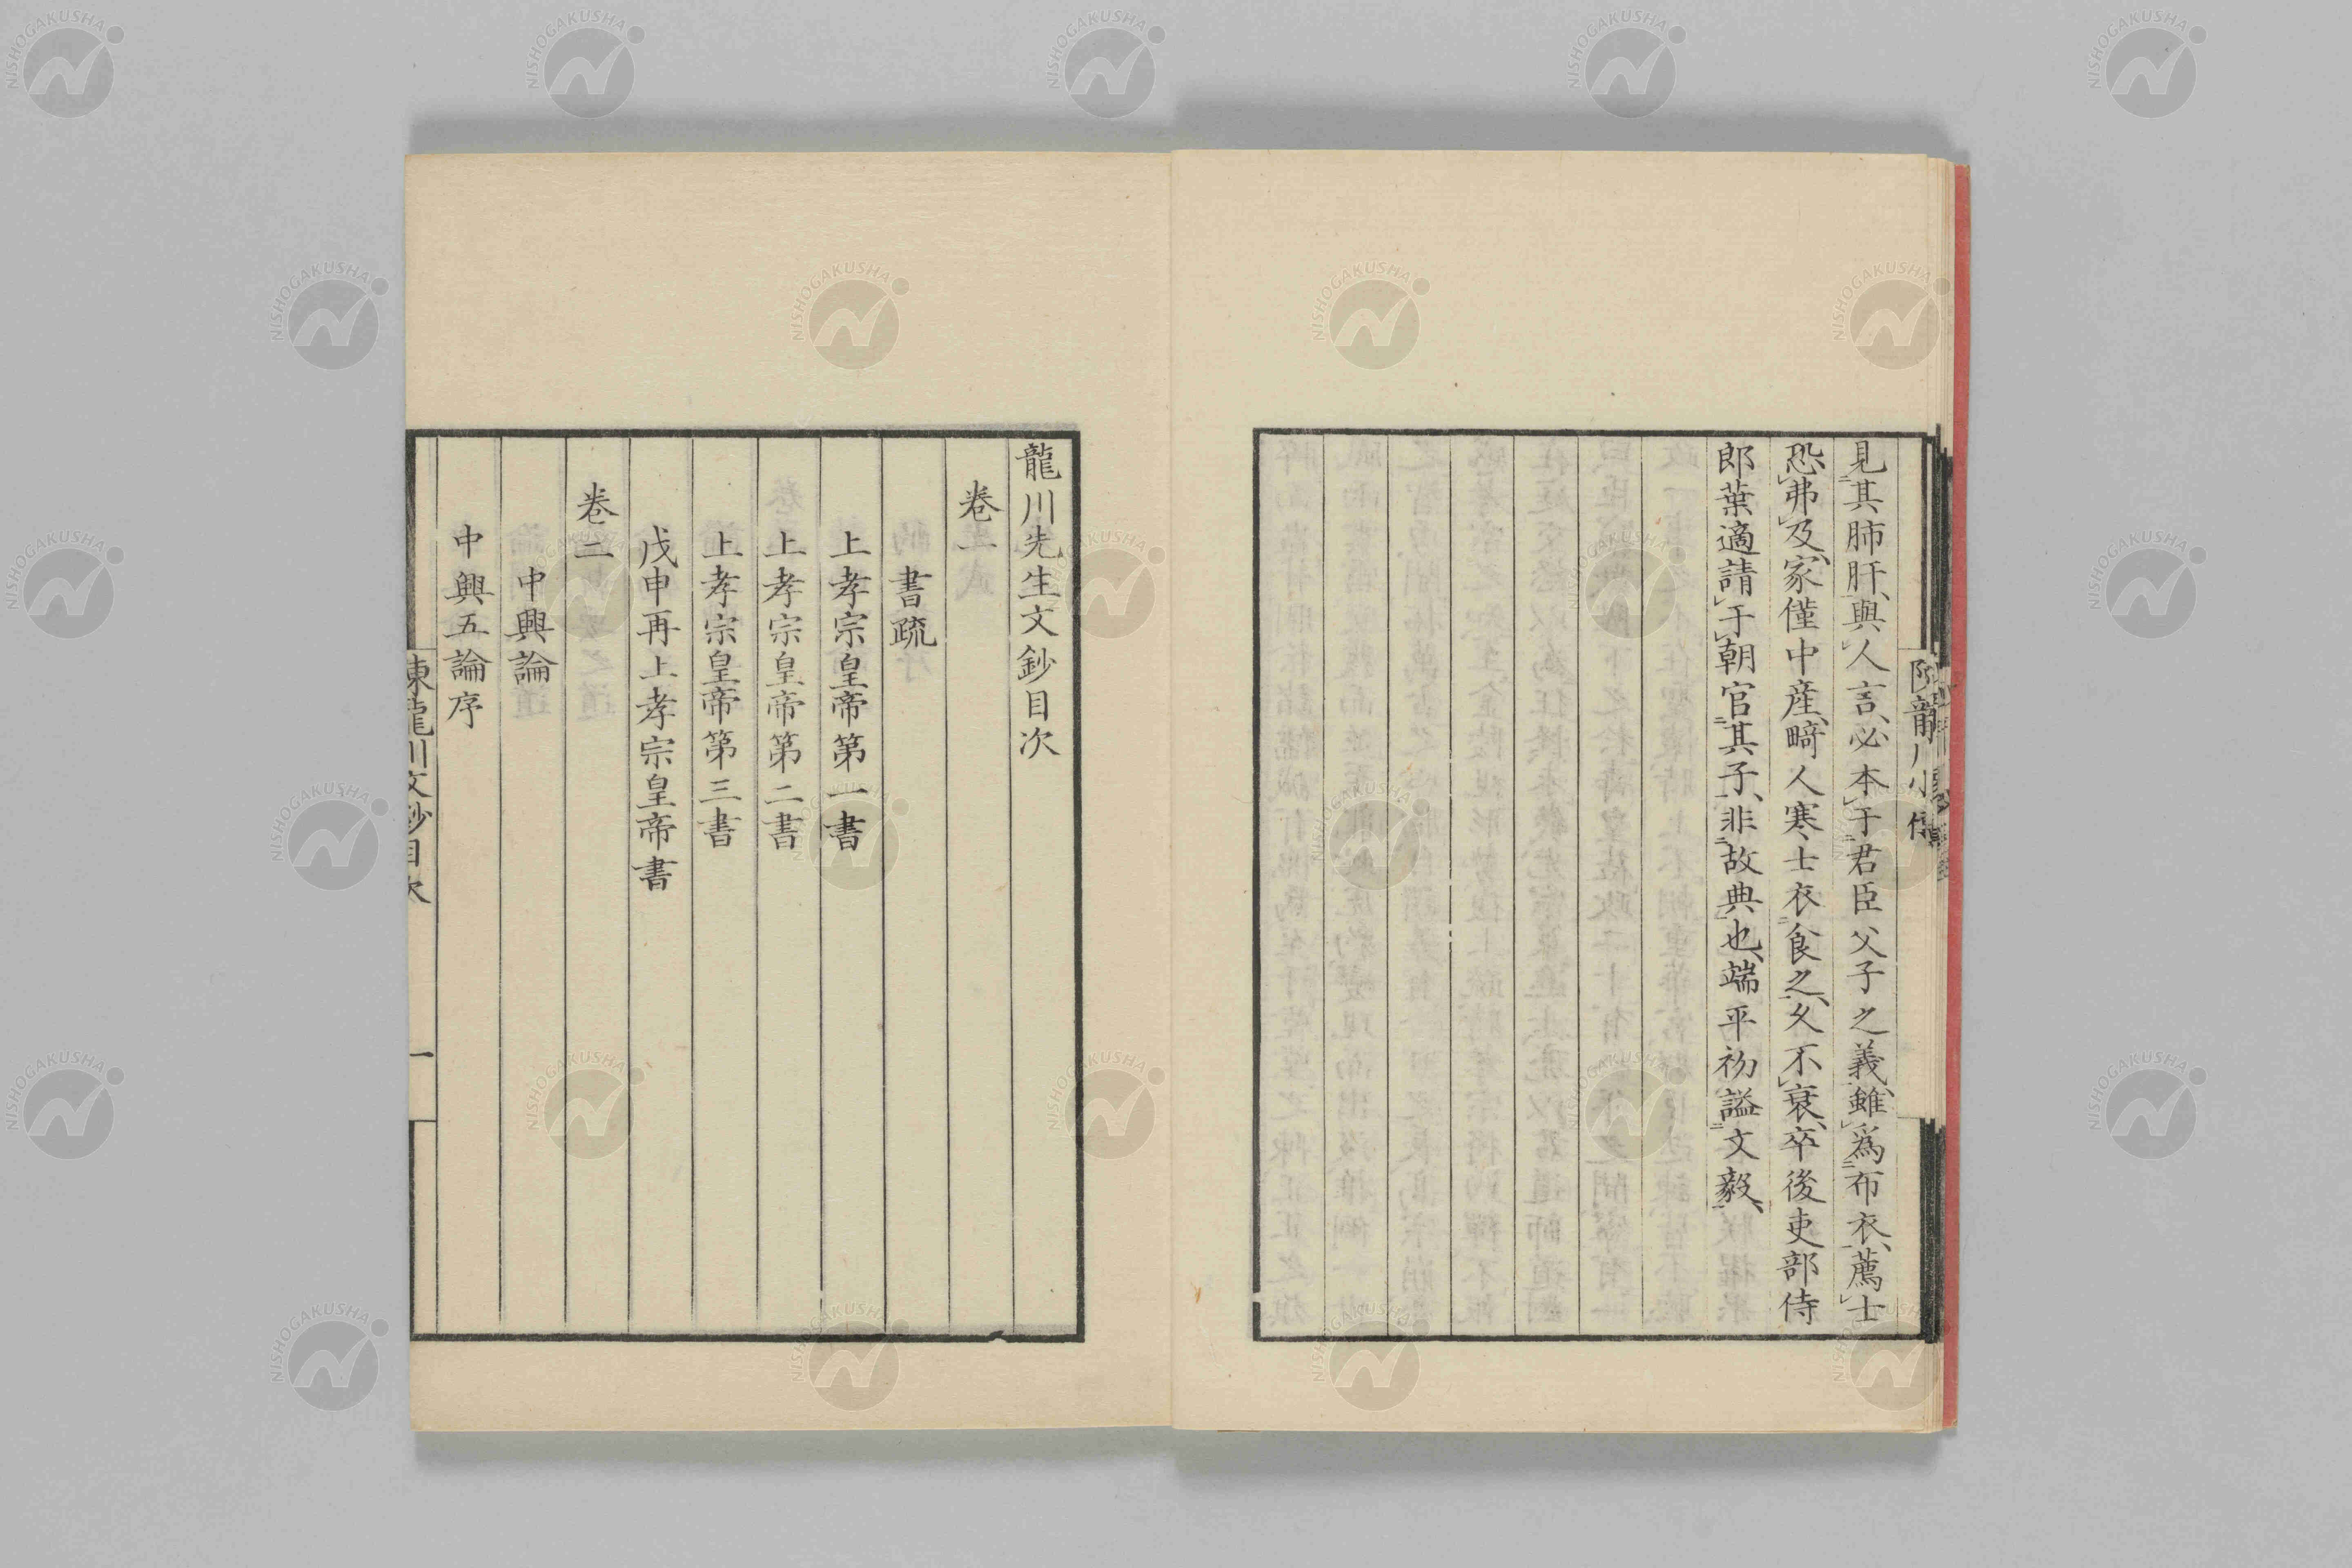 見其肺肝與人言必本于君臣父子之義雖爲布衣薦士
恐弗及家僅中産畸人寒士衣食之久不衰卒後吏部侍
郎葉適請于朝官其子非故典也端平初謚文毅
龍川先生文鈔目次
卷一
書疏
上孝宗皇帝第一書
上孝宗皇帝第二書
上孝宗皇帝第三書
戊申再上孝宗皇帝書
卷二
中興論
中興五論序
陳龍川文鈔目次
一
NISHOGAKUSHA